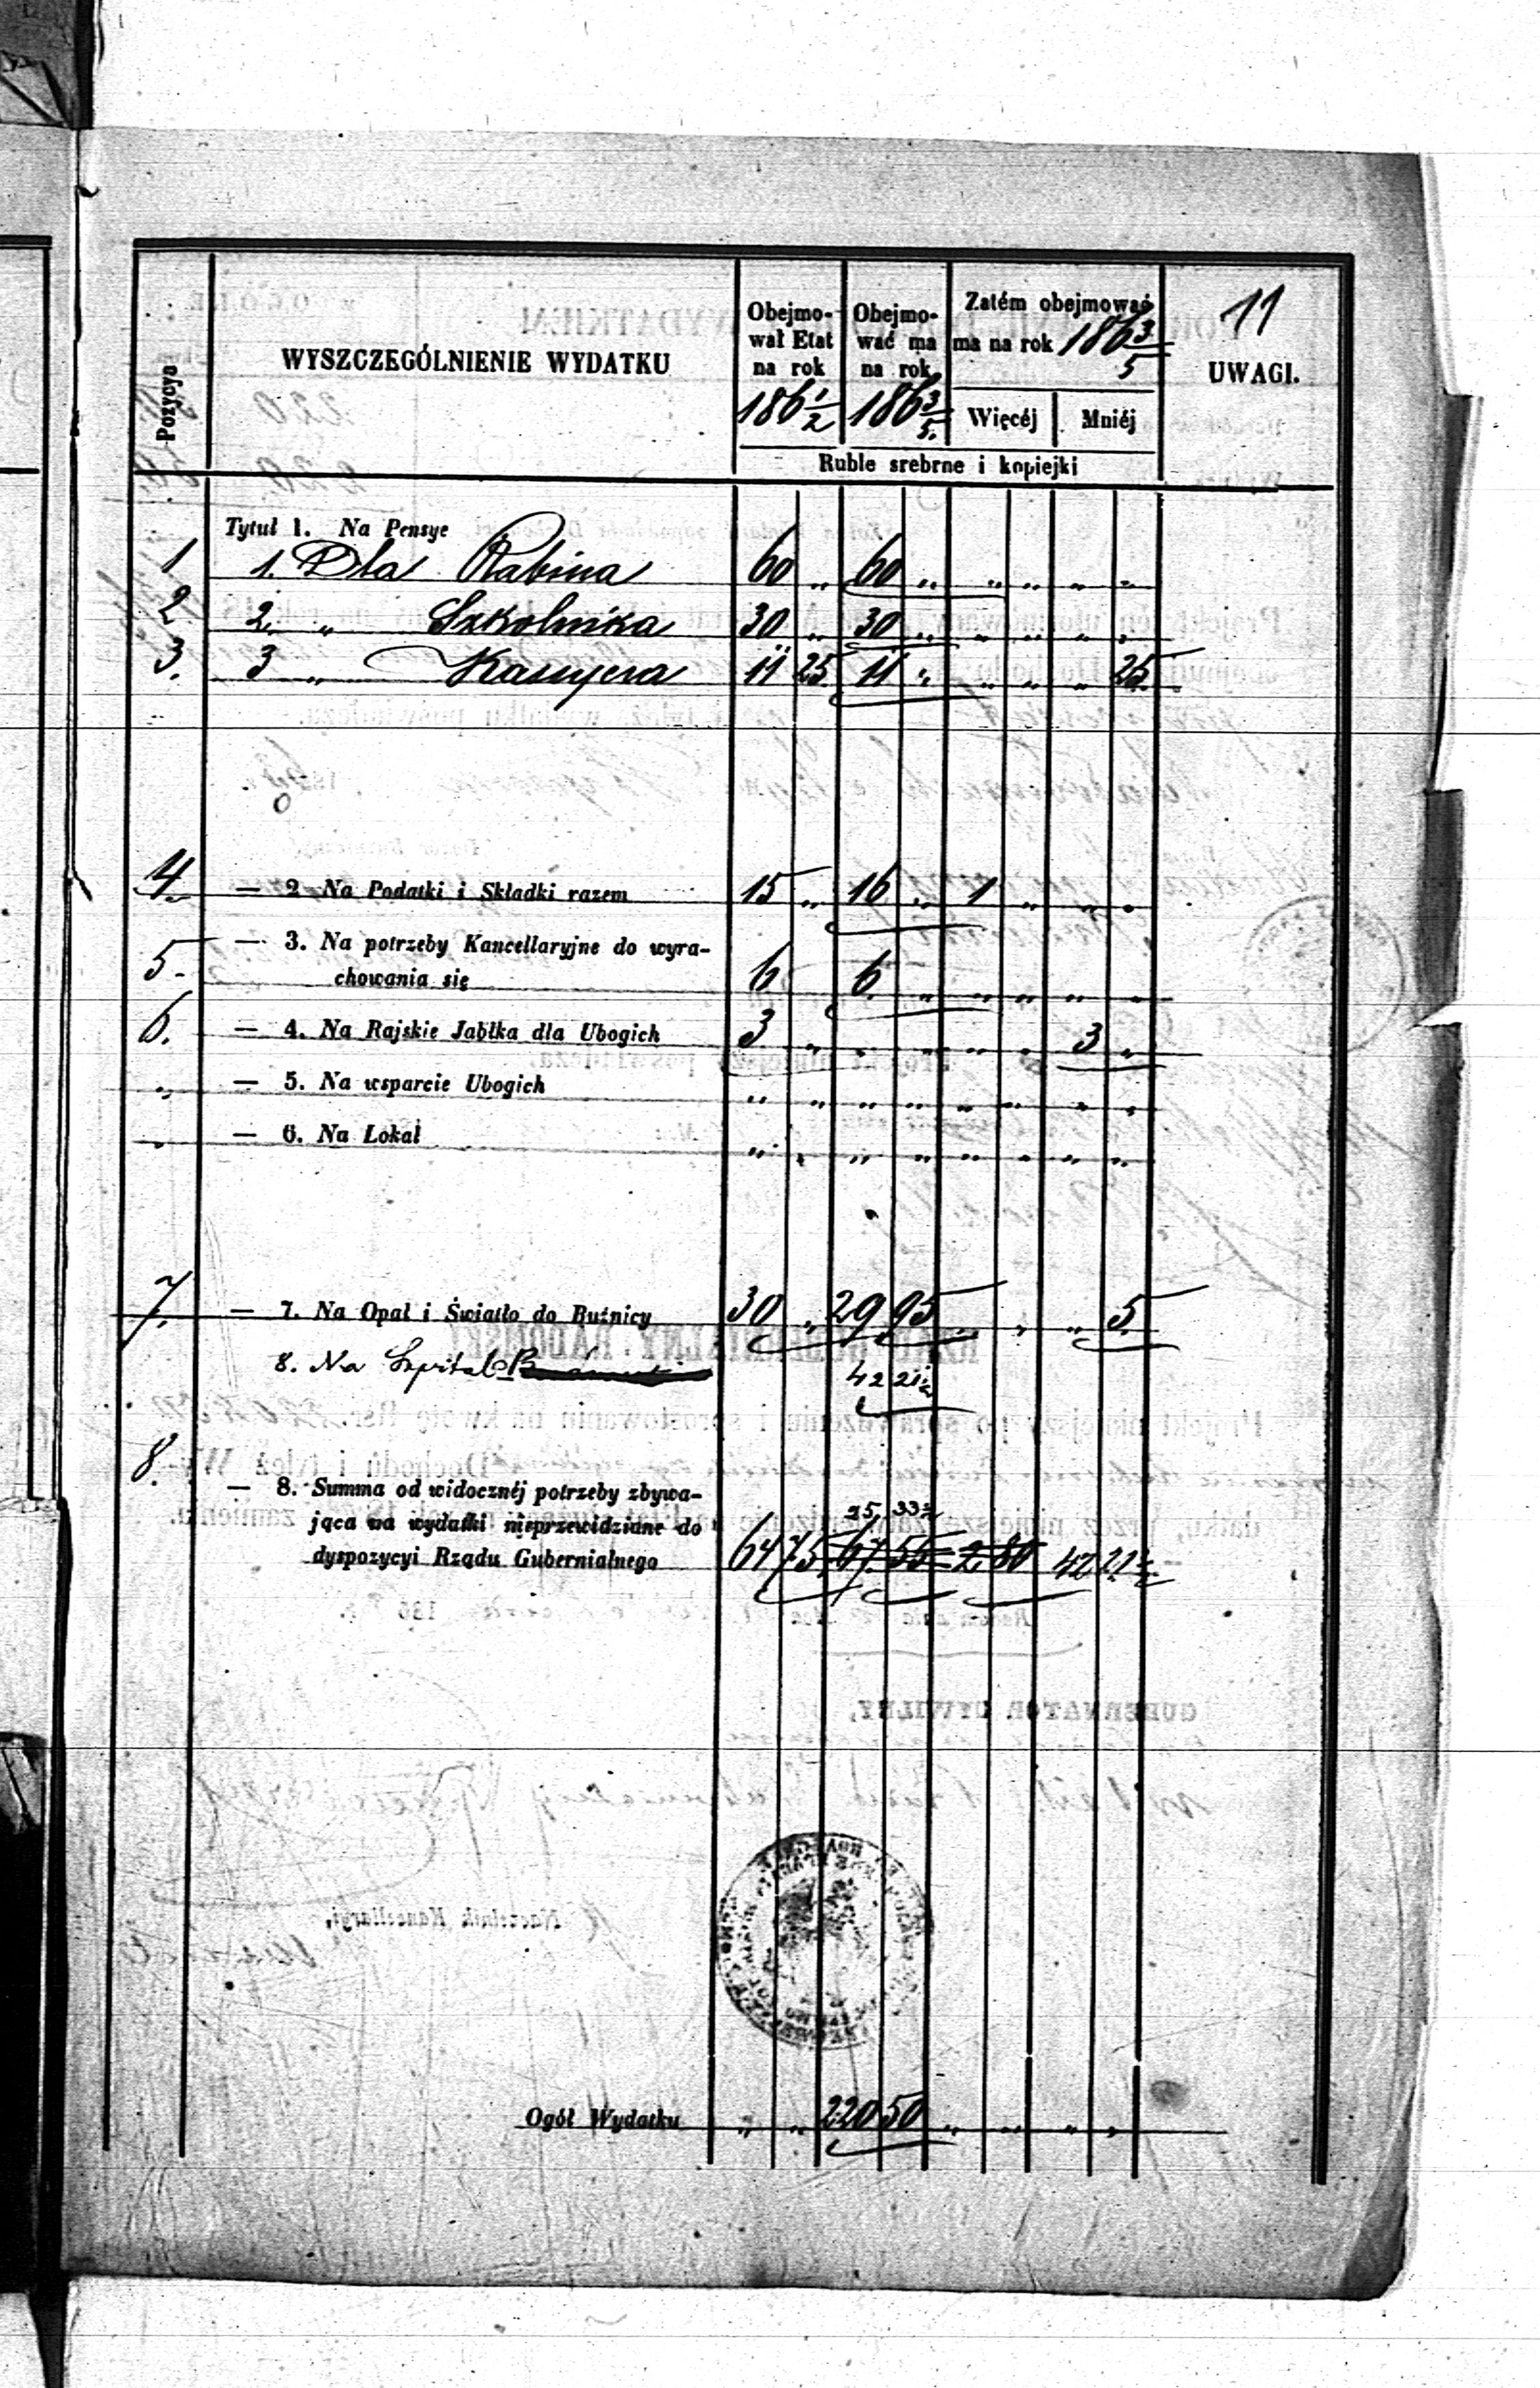 11
Pozycya
WYSZCZEGÓLNIENIE WYDATKU
Obejmo-
wał Etat
na rok
186 1/2
Obejmo-
wać ma
na rok
186 3/5.
Zatém obejmować
ma na rok 186 3/5
Więcéj Mniéj
UWAGI.
Ruble srebrne i kopiejki
Tytuł 1. Na Pensye
1 1. Dla Rabina 60 „ 60 „ „ „ „ „
2 2. „ Szkolnika 30 „ 30 „ „ „ „ „
3. 3 „ Kassyera 11 25 11 „ „ „ „ 25
4 — 2 Na Podatki i Składki razem 15 „ 16 „ 1 „ „ „
— 3. Na potrzeby Kancellaryjne do wyra-
5 - chowania się 6 6 „ „ „ „ „
6. — 4. Na Rajskie Jabłka dla Ubogich 3 „ „ „ „ „ 3 „
„ — 5. Na wsparcie Ubogich „ „ „ „ „ „ „ „
„ — 6. Na Lokal „ „ „ „ „ „ „ „
7. — 7. Na Opał i Światło do Buźnicy 30 „ 29 95 „ „ „ 5
8. Na Szpital 42 21½
8. — 8. Summa od widocznéj potrzeby zbywa-
jąca na wydatki nieprzewidziane do 25 33½
dyspozycyi Rządu Gubernialnego 64 75 67 55 2 80 42 21½
Ogół Wydatku „ „ 220 50 „ „ „ „